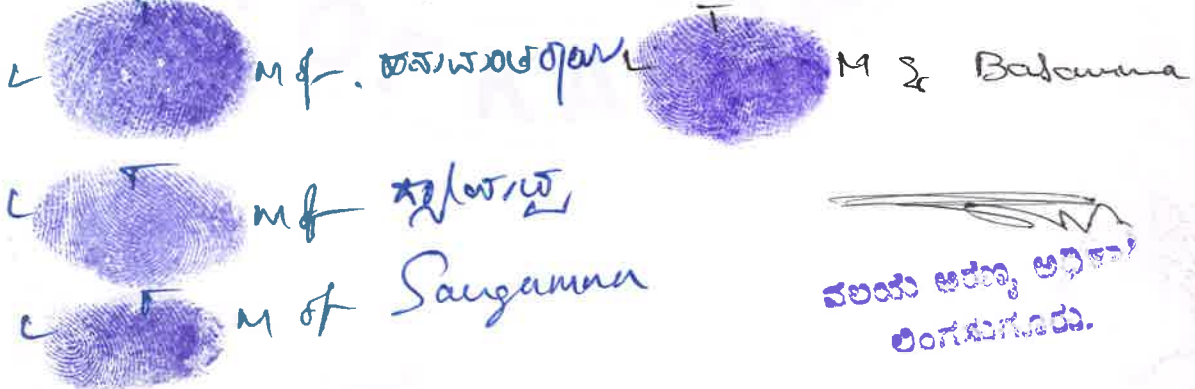 L T M of. ಹನುಮಂತರಾಯ L T M of Basamma
L T M of
L T M of Sangamma
ವಲಯ ಅರಣ್ಯ ಅಧಿಕಾರಿ
ಲಿಂಗಸುಗೂರು.